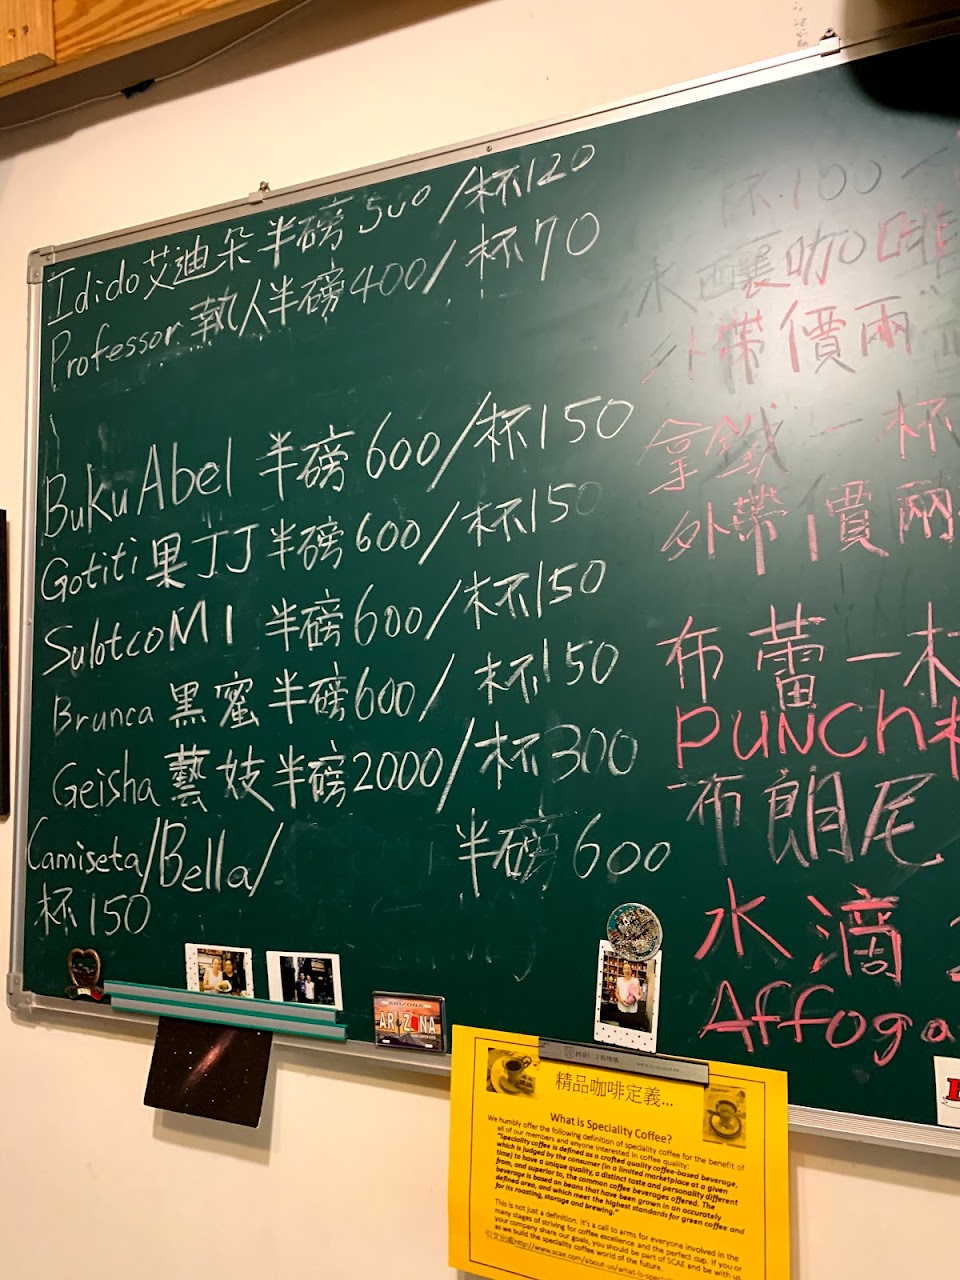 Idido 艾迪朵 半磅 500/杯120
Professor 執人半磅400/杯70
BukuAbel 半磅600/杯150
Gotiti 果丁丁半磅600/杯150
SulotcoM1 半磅600/杯150
Brunca 黑蜜半磅600/杯150
Geisha 藝妓半磅2000/杯300
Camiseta/Bella/ 半磅600
杯150
杯100/
冰釀咖啡
外帶價兩
拿鐵一杯
外帶價兩
布蕾一杯
PUNCH杯
布朗尼
水滴
Affoga
ARIZONA
ARIZONA
精品咖啡定義...
What is Speciality Coffee?
We humbly offer the following definition of speciality coffee for the benefit of
all of our members and anyone interested in coffee quality:
"Speciality coffee is defined as a crafted quality coffee-based beverage,
which is judged by the consumer (in a limited marketplace at a given
time) to have a unique quality, a distinct taste and personality different
from, and superior to, the common coffee beverages offered. The
beverage is based on beans that have been grown in an accurately
defined area, and which meet the highest standards for green coffee and
for its roasting, storage and brewing."
This is not just a definition. It's a call to arms for everyone involved in the
many stages of striving for coffee excellence and the perfect cup. If you or
your company share our goals, you should be part of SCAE and be with us
as we build the speciality coffee world of the future.
引文出處http://www.scae.com/about-us/what-is-speciali